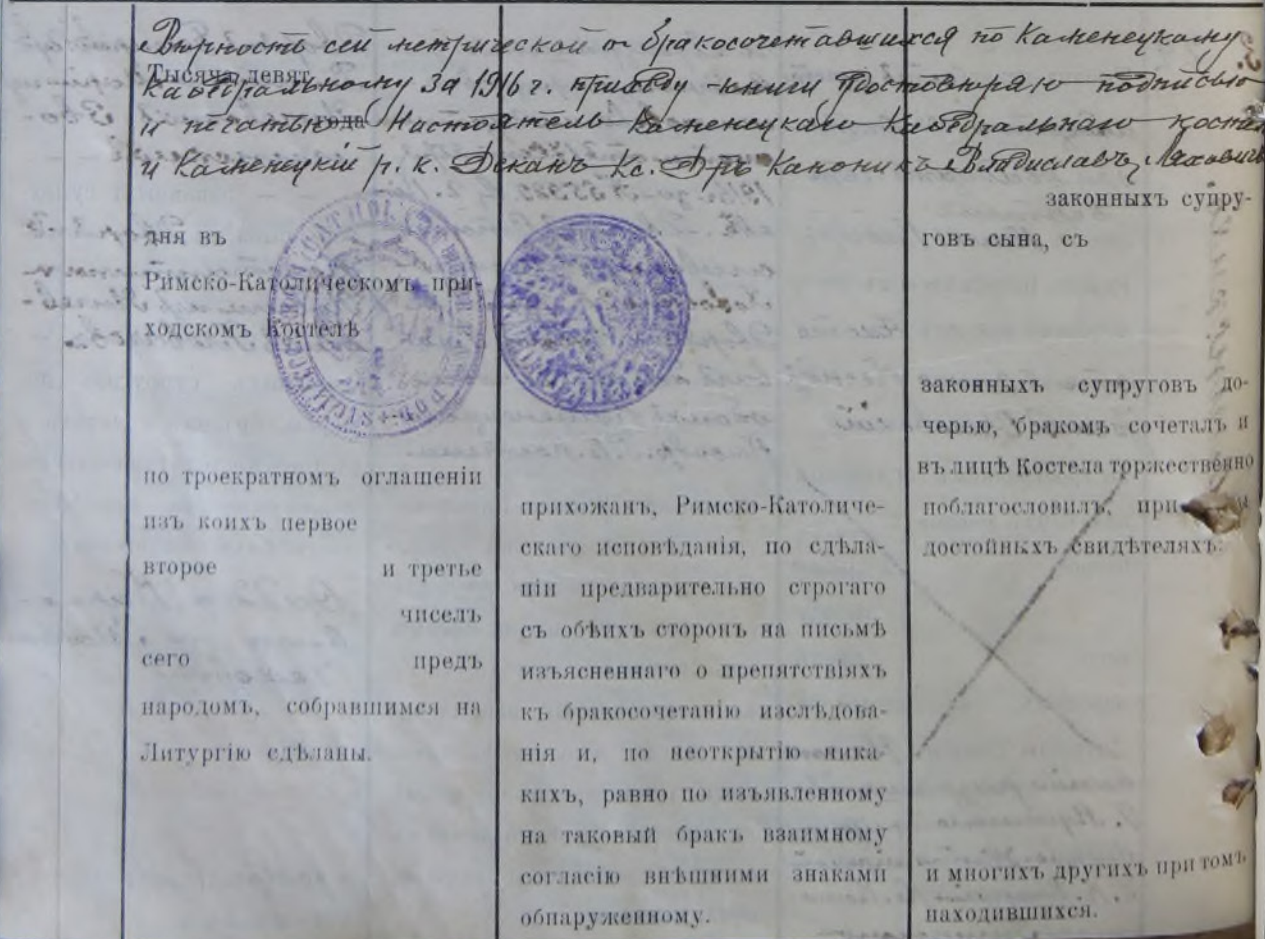 Вѣрность сей метрической о бракосочетавшихся по Каменецкому
Каѳедральному за 1916 г. приходу книги удостовѣряю подписью
и печатью Настоятель Каменецкаго Каѳедральнаго костела
и Каменецкій р. к. Деканъ Кс. Дръ Каноникъ Владиславъ
Тысяча девят
года
дня въ
Римско-Католическомъ при-
ходскомъ Костелѣ
по троекратномъ оглашеніи
изъ коихъ первое
второе и третье
чиселъ
сего предъ
народомъ, собравшимся на
Литургію сдѣланы.
прихожанъ, Римско-Католиче-
скаго исповѣданія, по сдѣла-
ніи предварительно строгаго
съ обѣихъ сторонъ на письмѣ
изъясненнаго о препятствіяхъ
къ бракосочетанію изслѣдова-
нія и, по неоткрытію ника-
кихъ, равно по изъявленному
на таковый бракъ взаимному
согласію внѣшними знаками
обнаруженному.
законныхъ супру-
говъ сына, съ
законныхъ супруговъ до-
черью, бракомъ сочеталъ и
въ лицѣ Костела торжественно
поблагословилъ, при
достойныхъ свидѣтеляхъ:
и многихъ другихъ при томъ
находившихся.